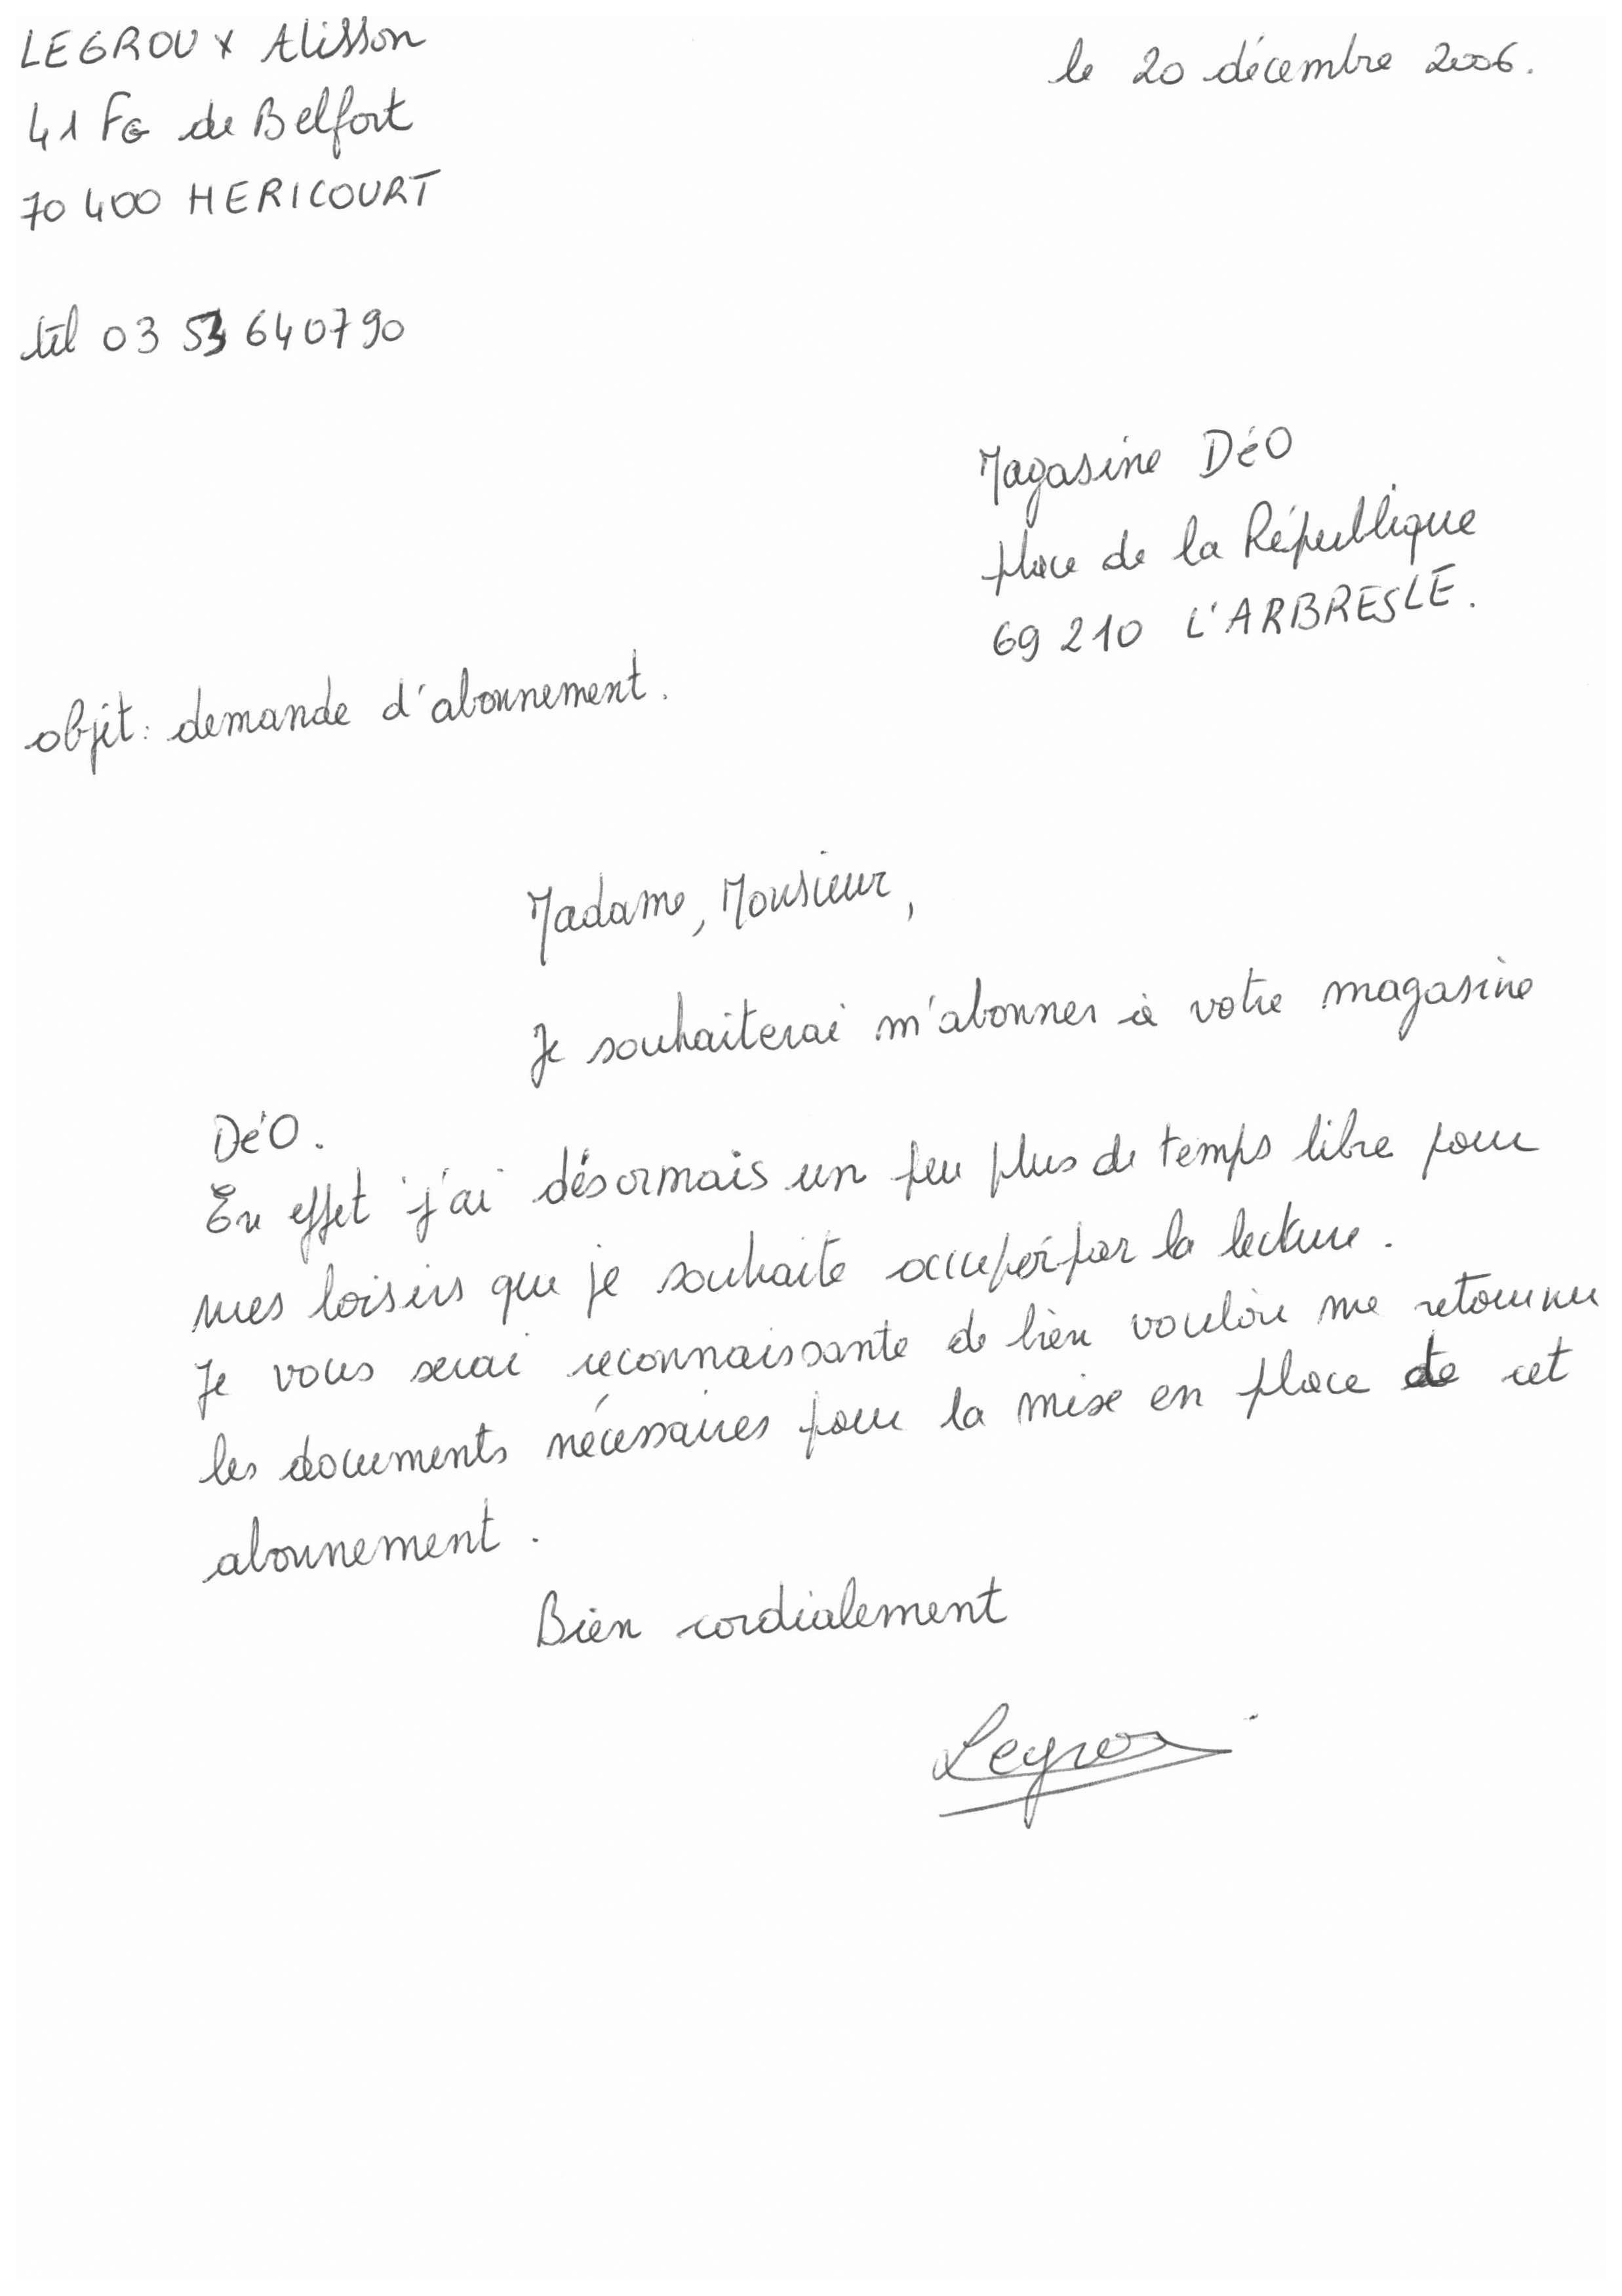 LEGROUX Alisson
le 20 décembre 2006.
41 FG de Belfort
70 400 HERICOURT
tél 03 53 640790
Magasine DéO
place de la République
69 210 L'ARBRESLE.
objet: demande d'abonnement.
Madame, Monsieur,
Je souhaiterai m'abonner à votre magasine
DéO.
En effet j'ai désormais un peu plus de temps libre pour
mes loisirs que je souhaite occuper par la lecture.
Je vous serai reconnaissante de bien vouloir me retourner
les documents nécessaires pour la mise en place de cet
abonnement.
Bien cordialement